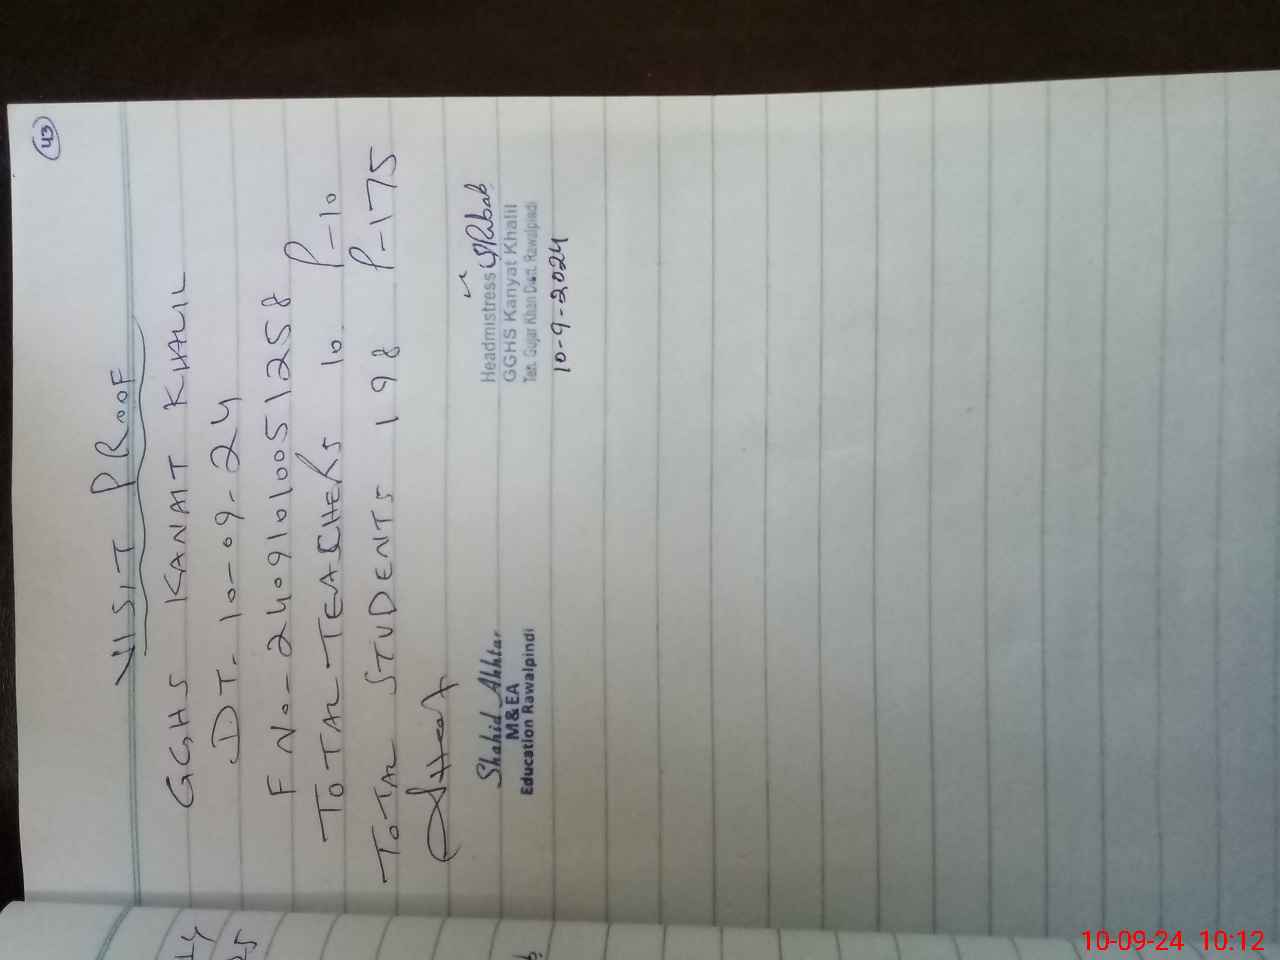 43
VISIT PROOF
GGHS KANAIT KHALIL
DT. 10-09-24
F No- 24091010051258
TOTAL TEACHERS 10 P-10
TOTAL STUDENTS 198 P-175
Shahid Akhtar
M & EA
Education Rawalpindi
Headmistress
GGHS Kanyat Khalil
Teh. Gujar Khan Distt. Rawalpindi
10-9-2024
10-09-24 10:12